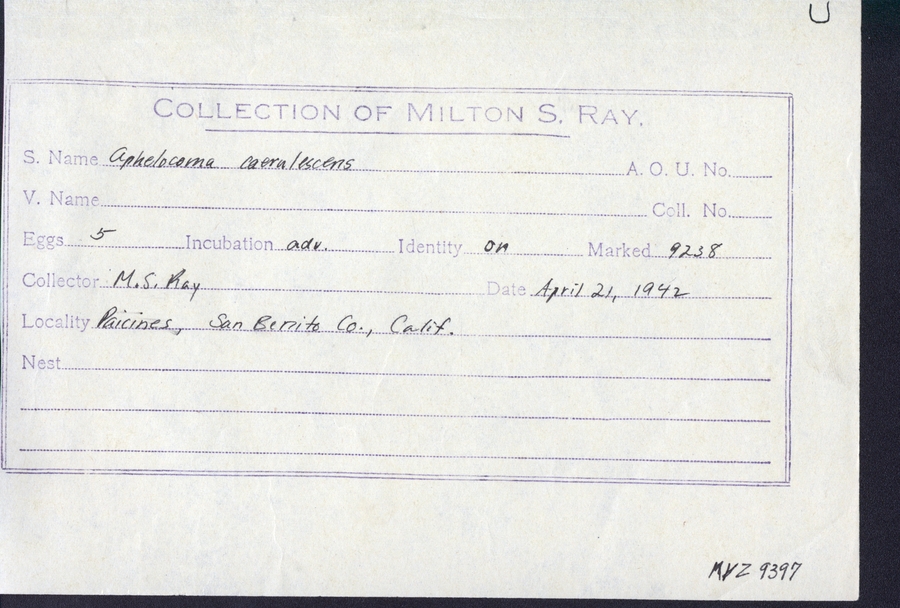 U
COLLECTION OF MILTON S. RAY.
S. Name Aphelocoma caerulescens A. O. U. No.
V. Name Coll. No.
Eggs 5 Incubation adv. Identity on Marked 9238
Collector M.S. Ray Date April 21, 1942
Locality Paicines, San Benito Co., Calif.
Nest
MVZ 9397